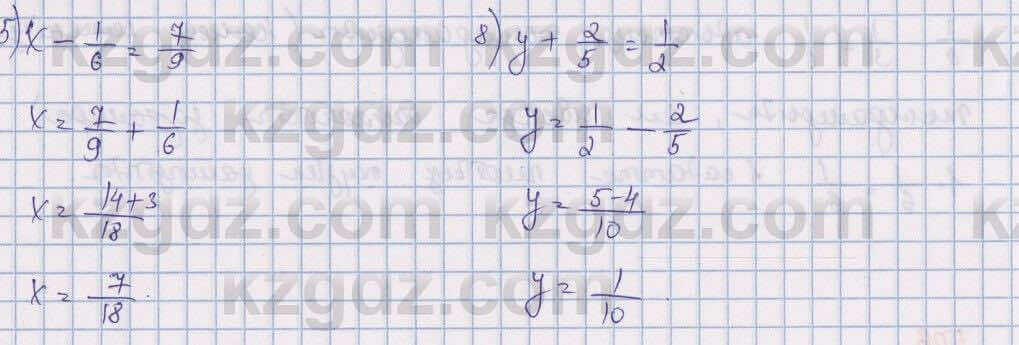 5) x - 1/6 = 7/9
x = 7/9 + 1/6
x = 14+3/18
x = 7/18.
8) y + 2/5 = 1/2
y = 1/2 - 2/5
y = 5-4/10
y = 1/10.
kzgdz.com kzgdz.com
kzgdz.com kzgdz.com
kzgdz.com kzgdz.com
kzgdz.com